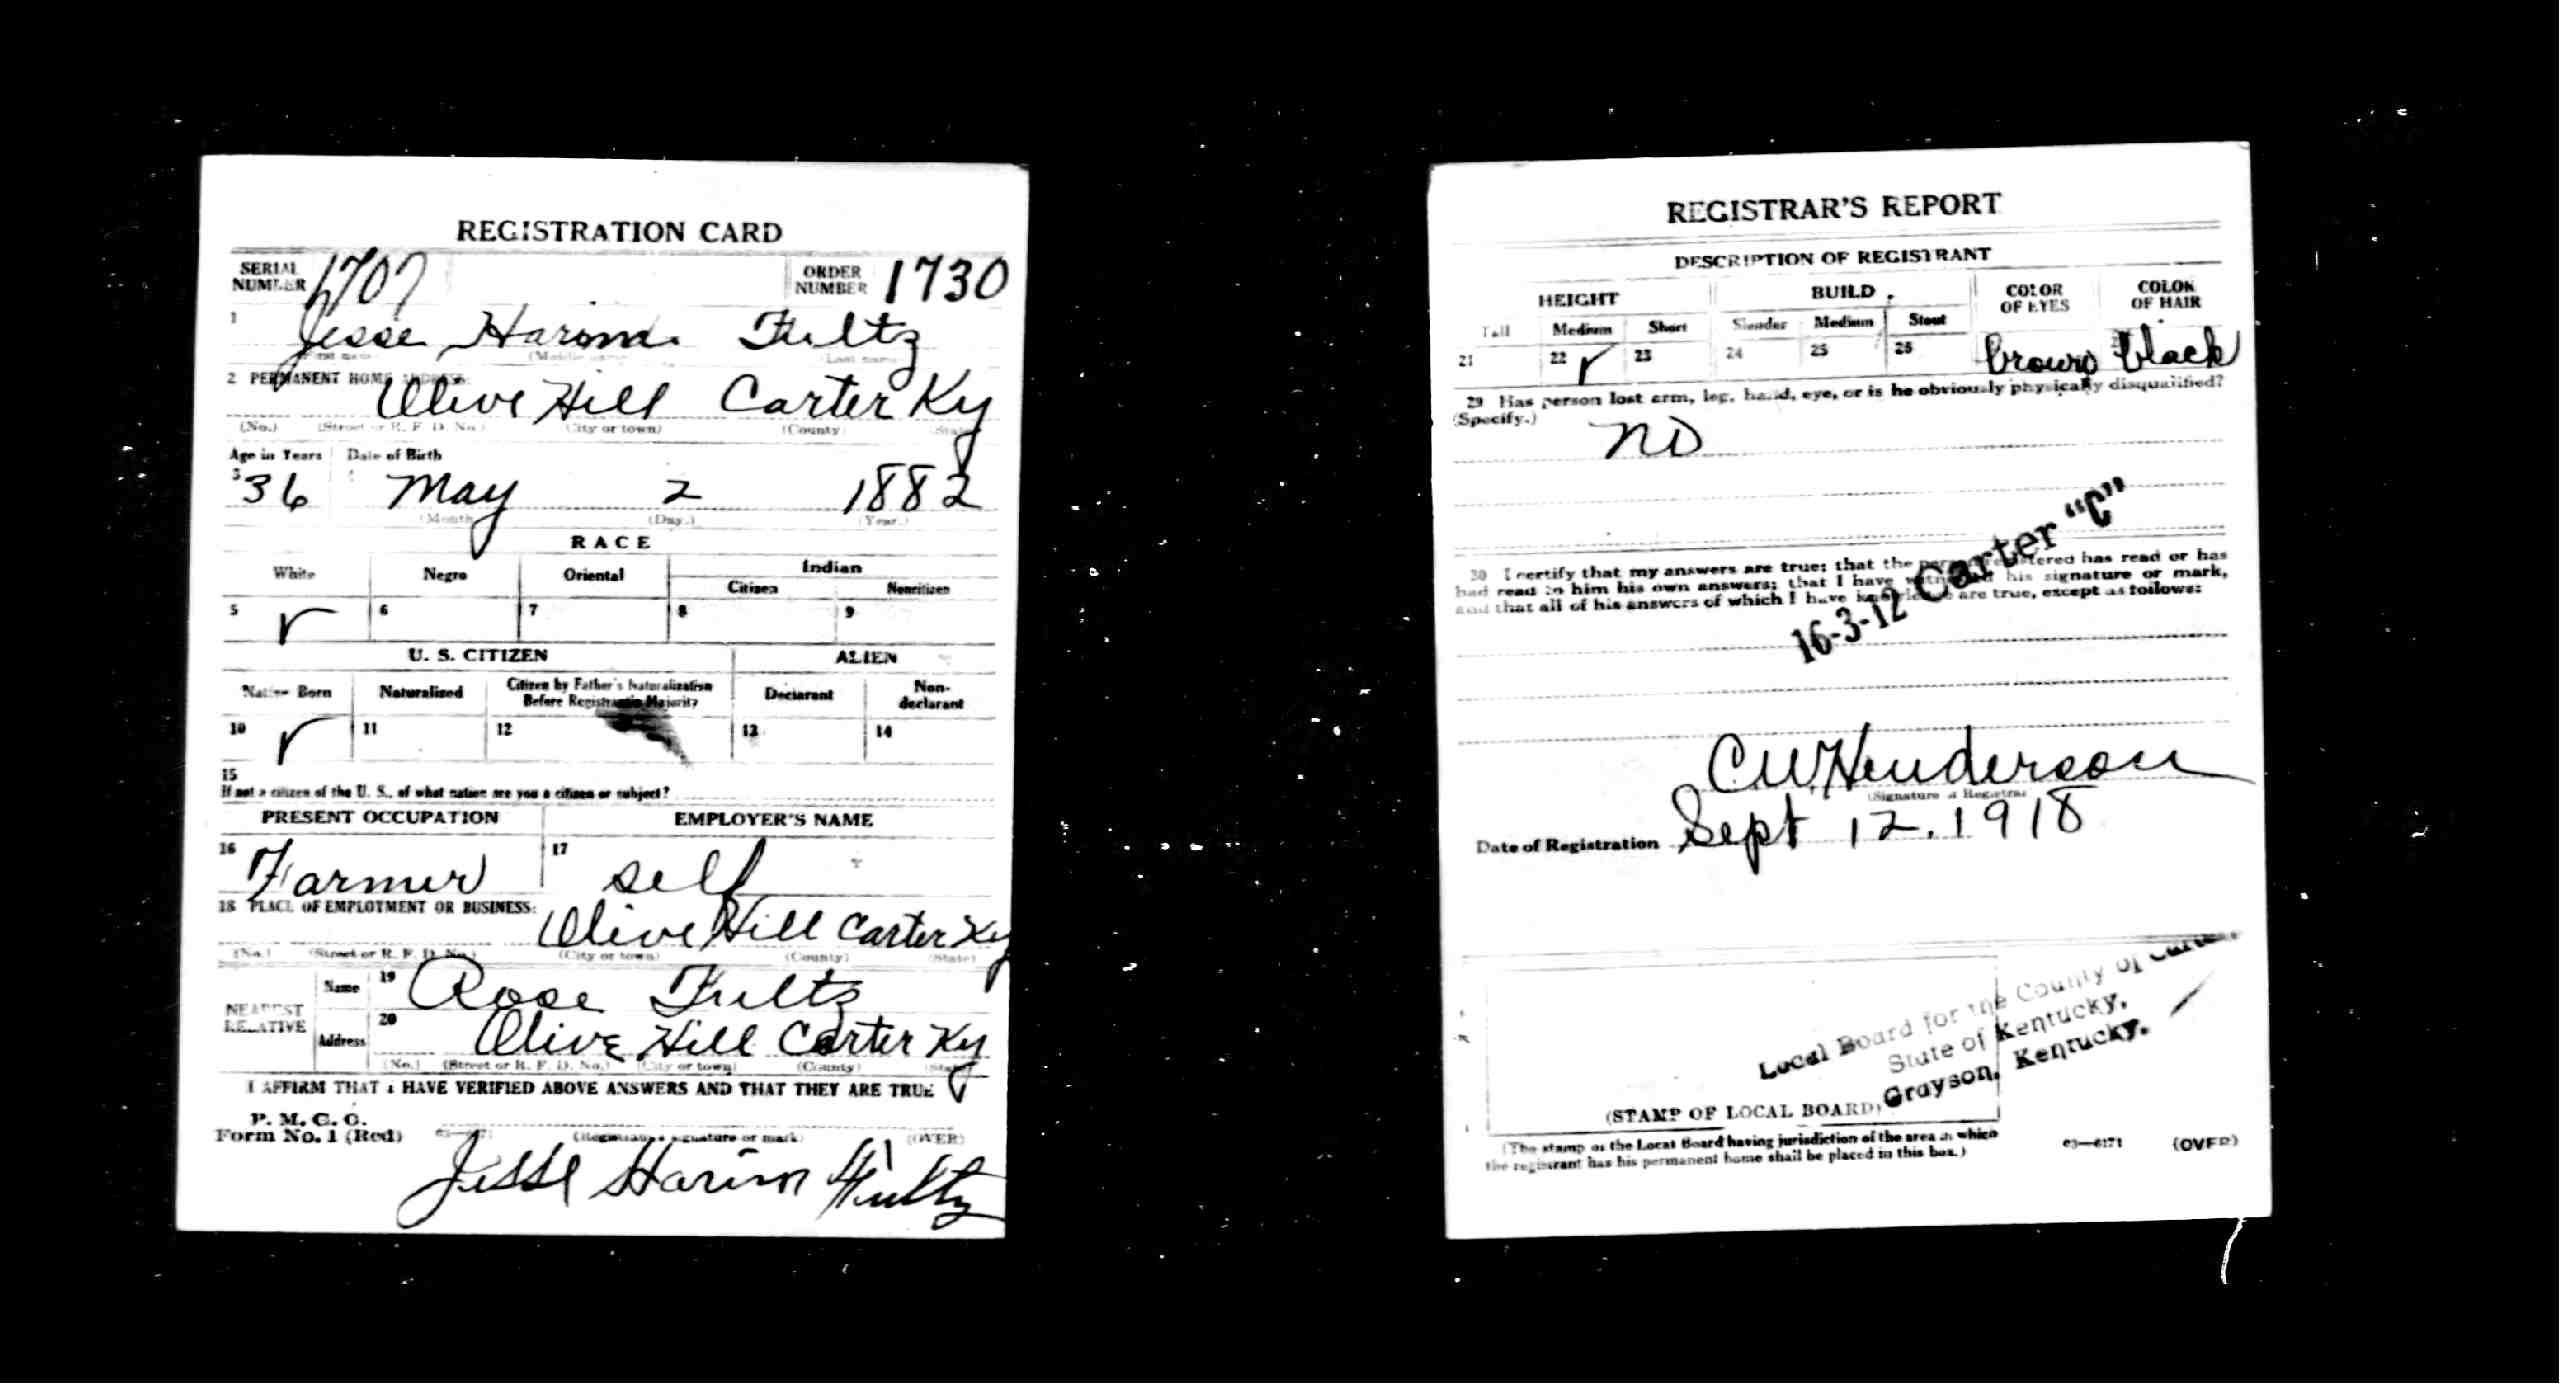 REGISTRATION CARD
SERIAL NUMBER 1707 ORDER NUMBER 1730
1 Jesse Harim Fultz
(First name) (Middle name) (Last name)
2 PERMANENT HOME ADDRESS:
Olive Hill Carter Ky
(No.) (Street or R. F. D. No.) (City or town) (County) (State)
Age in Years Date of Birth
3 36 4 May 2 1882
(Month.) (Day.) (Year.)
RACE
White Negro Oriental Indian
Citizen Noncitizen
5 6 7 8 9
U. S. CITIZEN ALIEN
Native Born Naturalized Citizen by Father's Naturalization Before Registrant's Majority Declarant Non-declarant
10 11 12 13 14
15
If not a citizen of the U. S., of what nation are you a citizen or subject?
PRESENT OCCUPATION EMPLOYER'S NAME
16 Farmer 17 self
18 PLACE OF EMPLOYMENT OR BUSINESS:
Olive Hill Carter Ky
(No.) (Street or R. F. D. No.) (City or town) (County) (State)
NEAREST RELATIVE Name 19 Rose Fultz
Address 20 Olive Hill Carter Ky
(No.) (Street or R. F. D. No.) (City or town) (County) (State)
I AFFIRM THAT I HAVE VERIFIED ABOVE ANSWERS AND THAT THEY ARE TRUE
P. M. G. O.
Form No. 1 (Red) (Registrant's signature or mark) (OVER)
Jesse Harim Fultz
REGISTRAR'S REPORT
DESCRIPTION OF REGISTRANT
HEIGHT BUILD COLOR OF EYES COLOR OF HAIR
Tall Medium Short Slender Medium Stout
21 22 23 24 25 26 brown black
29 Has person lost arm, leg, hand, eye, or is he obviously physically disqualified?
(Specify.)
no
30 I certify that my answers are true; that the person registered has read or has
had read to him his own answers; that I have witnessed his signature or mark,
and that all of his answers of which I have knowledge are true, except as follows:
16-3-12 Carter "C"
C W Henderson
(Signature of Registrar)
Date of Registration Sept 12, 1918
Local Board for the County of Carter
State of Kentucky,
Grayson, Kentucky.
(STAMP OF LOCAL BOARD)
(The stamp of the Local Board having jurisdiction of the area in which
the registrant has his permanent home shall be placed in this box.)
03—6171 (OVER)